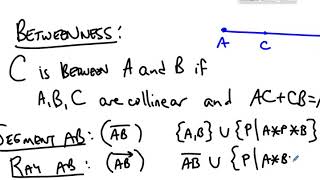 BETWEENNESS:
A C
C IS BETWEEN A AND B IF
A,B,C are collinear and AC+CB=
SEGMENT AB: (\overline{AB}) {A,B} ∪ {P | A*P*B}
RAY AB: (\overrightarrow{AB}) \overline{AB} ∪ {P | A*B*